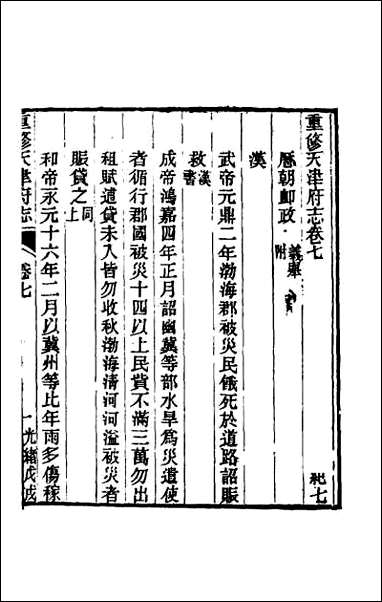 重修天津府志卷七
紀七
歷朝卹政 義舉附
漢
武帝元鼎二年渤海郡被災民餓死於道路詔賑
救 漢書
成帝鴻嘉四年正月詔幽冀等部水旱爲災遣使
者循行郡國被災十四以上民貲不滿三萬勿出
租賦逋貸未入皆勿收秋渤海清河河溢被災者
賑貸之 同上
和帝永元十六年二月以冀州等比年雨多傷稼
重修天津府志
卷七
一
光緒戊戌